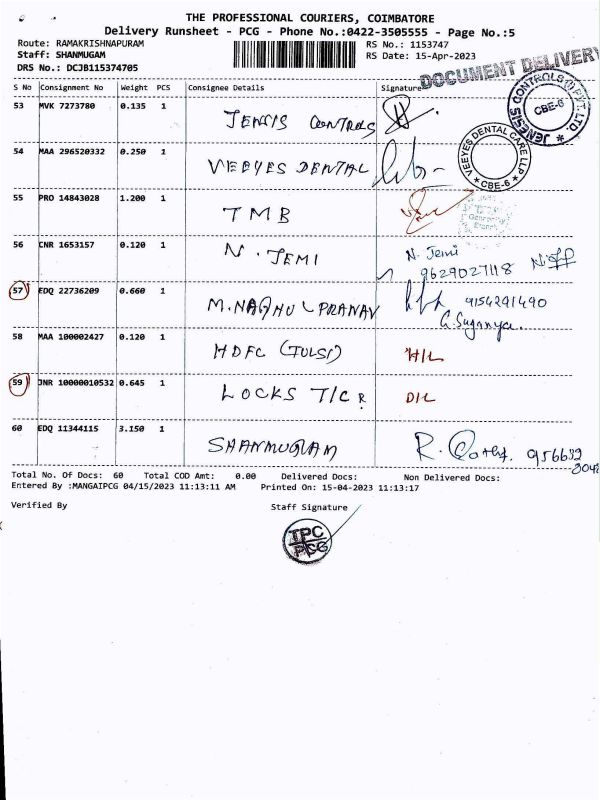 THE PROFESSIONAL COURIERS, COIMBATORE
Delivery Runsheet - PCG - Phone No.:0422-3505555 - Page No.:5
Route: RAMAKRISHNAPURAM RS No.: 1153747
Staff: SHANMUGAM RS Date: 15-Apr-2023
DRS No.: DCJB115374705
DOCUMENT DELIVERY
S No Consignment No Weight PCS Consignee Details Signature
53 MVK 7273780 0.135 1 JENSIS CONTROLS
JENESIS CONTROLS (I) PVT. LTD. CBE-6
54 MAA 296520332 0.250 1 VEEYES DENTAL
VEEYES DENTAL CARE LLP CBE-6
55 PRO 14843028 1.200 1 TMB
56 CNR 1653157 0.120 1 N. JEMI N. Jemi
9629027118
57 EDQ 22736209 0.660 1 PRANAV 9154291490
G. Suganya.
58 MAA 100002427 0.120 1 HDFC (TULSI) H/L
59 JNR 10000010532 0.645 1 LOCKS T/CR D/L
60 EDQ 11344115 3.150 1 SHANMUGAM R. 956632
Total No. Of Docs: 60 Total COD Amt: 0.00 Delivered Docs: Non Delivered Docs:
Entered By :MANGAIPCG 04/15/2023 11:13:11 AM Printed On: 15-04-2023 11:13:17
Verified By Staff Signature
TPC
PCG